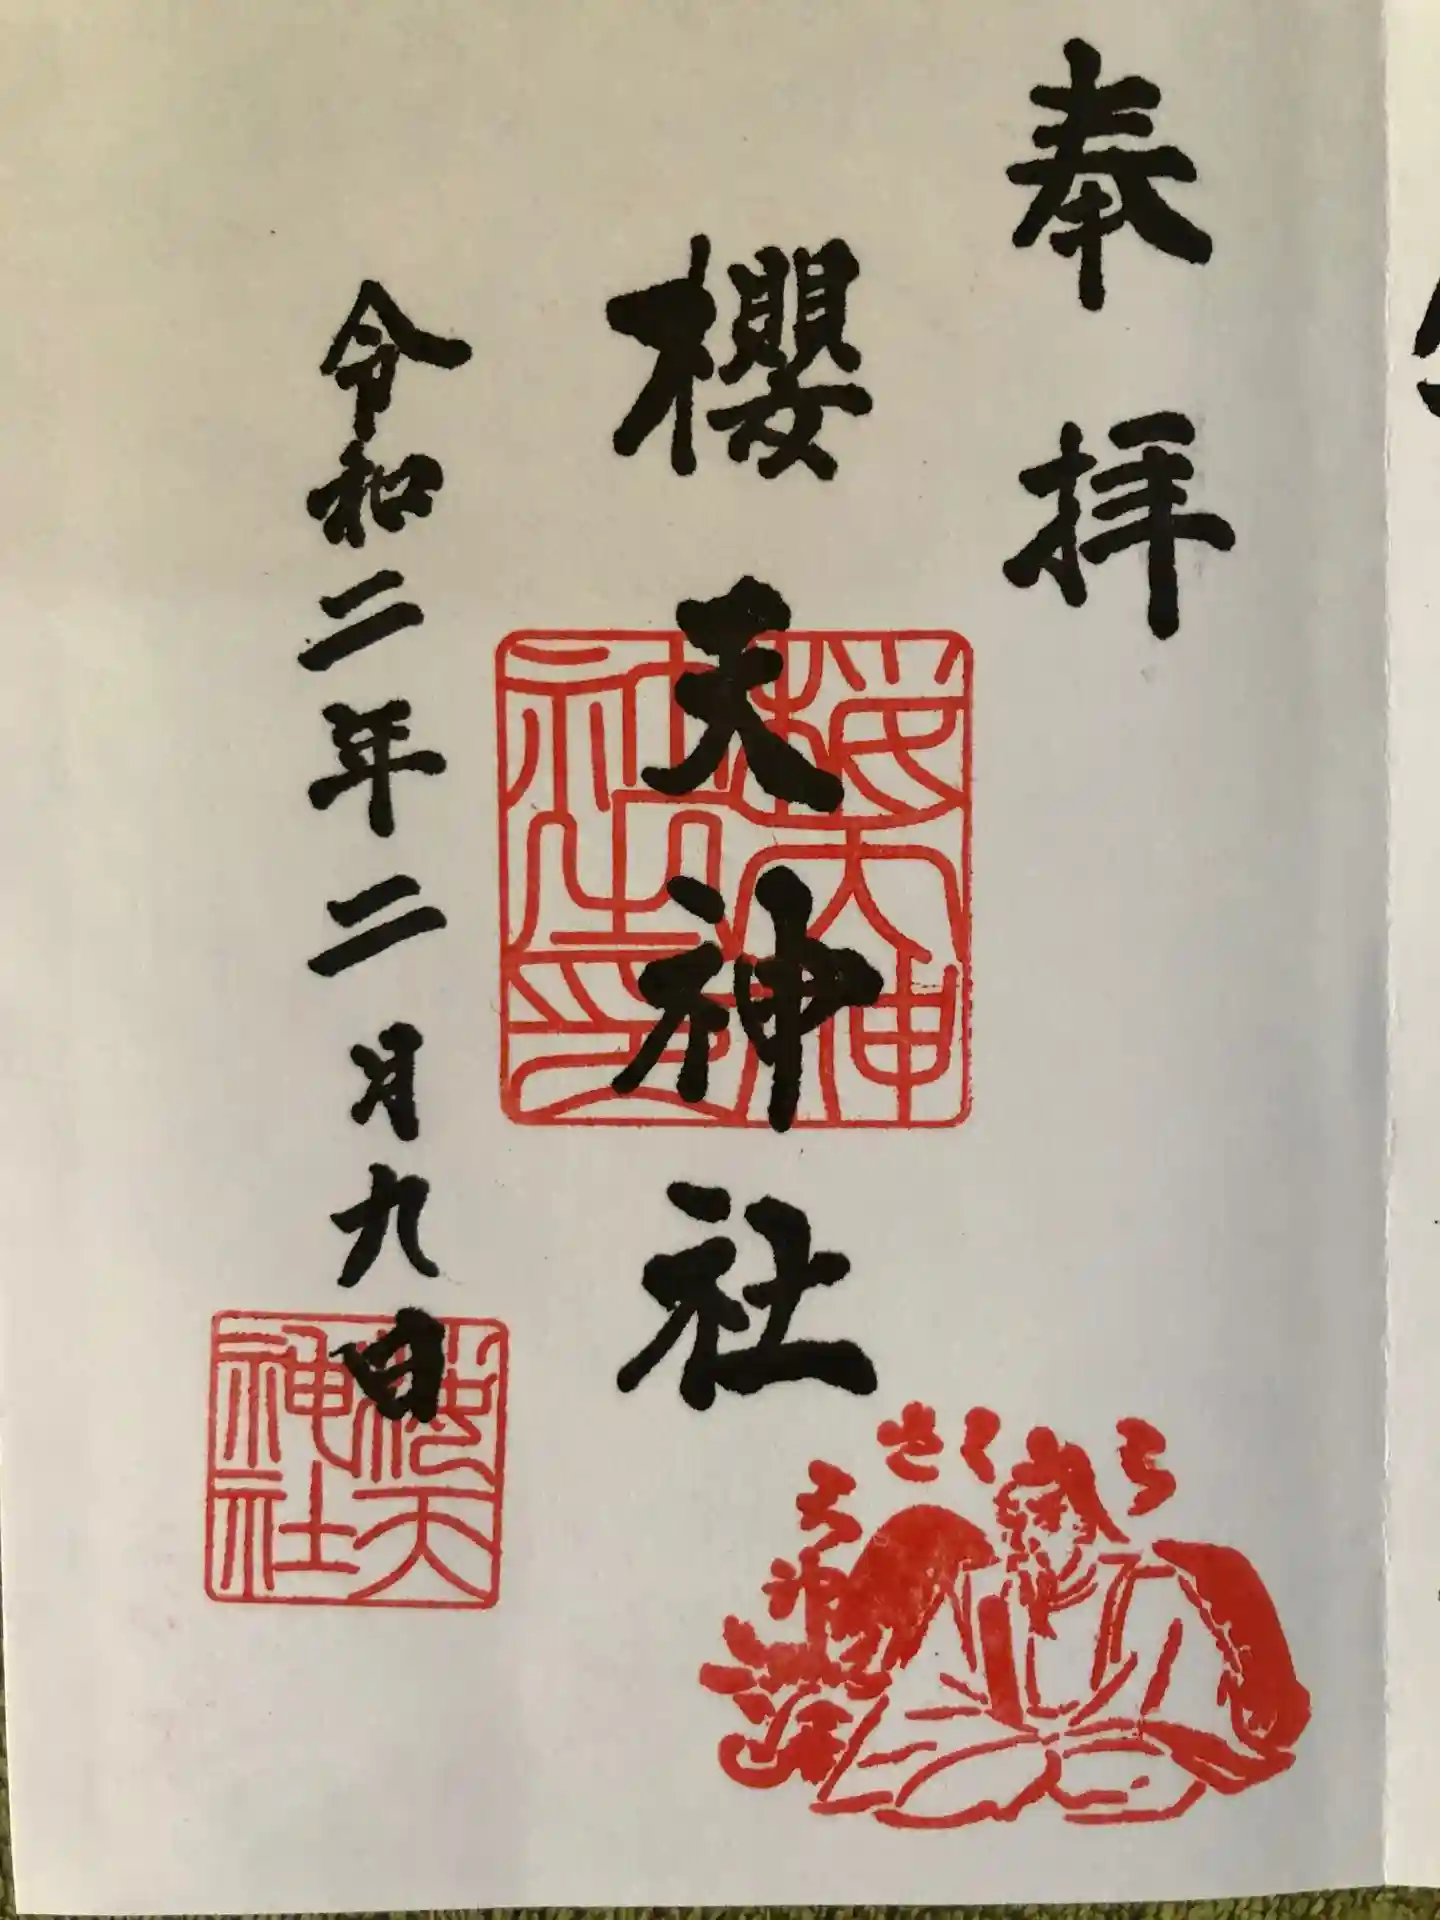 奉拝
櫻天神社
令和二年二月九日
桜天神
社之印
桜天
神社
さくら
天神